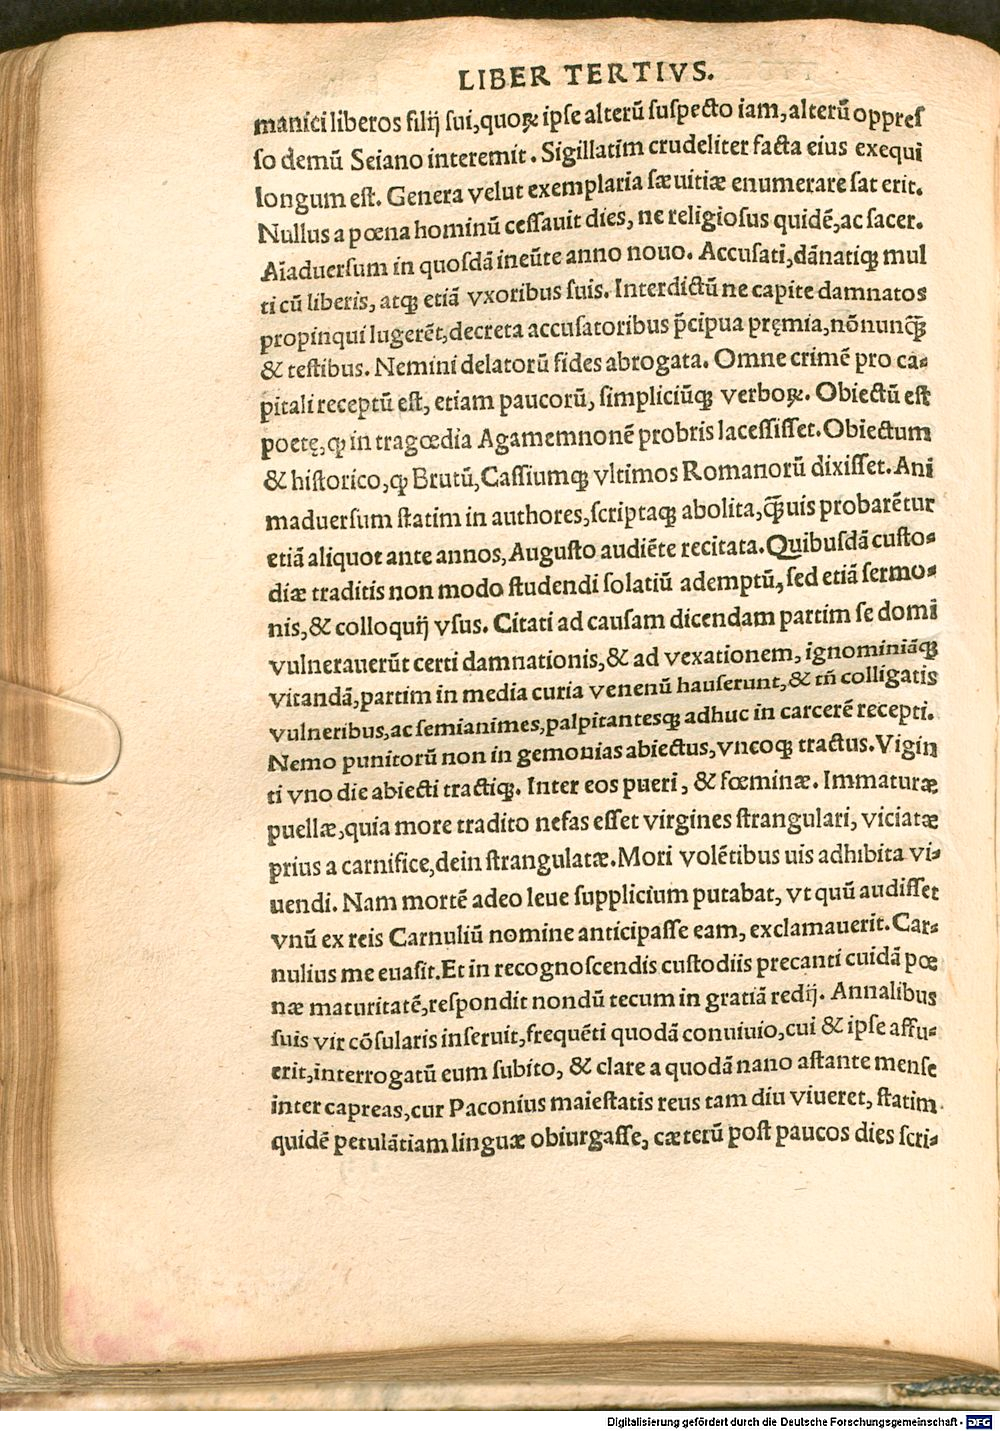 LIBER TERTIVS.
manici liberos filij sui,quoꝝ ipse alterū suspecto iam,alterū oppres
so demū Seiano interemit. Sigillatim crudeliter facta eius exequi
longum est. Genera velut exemplaria sæuitiæ enumerare sat erit.
Nullus a pœna hominū cessauit dies, ne religiosus quidē,ac sacer.
Aīaduersum in quosdā ineūte anno nouo. Accusati,dānatiqꝫ mul
ti cū liberis, atqꝫ etiā vxoribus suis. Interdictū ne capite damnatos
propinqui lugerēt,decreta accusatoribus p̄cipua pręmia,nōnunꝗ̄
& testibus. Nemini delatorū fides abrogata. Omne crimē pro ca-
pitali receptū est, etiam paucorū, simpliciūqꝫ verboꝝ. Obiectū est
poetę,ꝙ in tragœdia Agamemnonē probris lacessisset.Obiectum
& historico,ꝙ Brutū,Cassiumqꝫ vltimos Romanorū dixisset.Ani
maduersum statim in authores,scriptaqꝫ abolita,ꝗ̄uis probarētur
etiā aliquot ante annos,Augusto audiēte recitata.Quibusdā custo-
diæ traditis non modo studendi solatiū ademptū,sed etiā sermo-
nis,& colloquij vsus. Citati ad causam dicendam partim se domi
vulnerauerūt certi damnationis,& ad vexationem, ignominiāqꝫ
vitandā,partim in media curia venenū hauserunt,& tn̄ colligatis
vulneribus,ac semianimes,palpitantesqꝫ adhuc in carcerē recepti.
Nemo punitorū non in gemonias abiectus,vncoqꝫ tractus.Vigin
ti vno die abiecti tractiqꝫ. Inter eos pueri, & fœminæ. Immaturæ
puellæ,quia more tradito nefas esset virgines strangulari, viciatæ
prius a carnifice,dein strangulatæ.Mori volētibus uis adhibita vi-
uendi. Nam mortē adeo leue supplicium putabat, vt quū audisset
vnū ex reis Carnuliū nomine anticipasse eam, exclamauerit.Car-
nulius me euasit.Et in recognoscendis custodiis precanti cuidā pœ
næ maturitatē,respondit nondū tecum in gratiā redij. Annalibus
suis vir cōsularis inseruit,frequēti quodā conuiuio,cui & ipse affu-
erit,interrogatū eum subito, & clare a quodā nano astante mense
inter capreas,cur Paconius maiestatis reus tam diu viueret, statim
quidē petulātiam linguæ obiurgasse, cæterū post paucos dies scri-
Digitalisierung gefördert durch die Deutsche Forschungsgemeinschaft - DFG